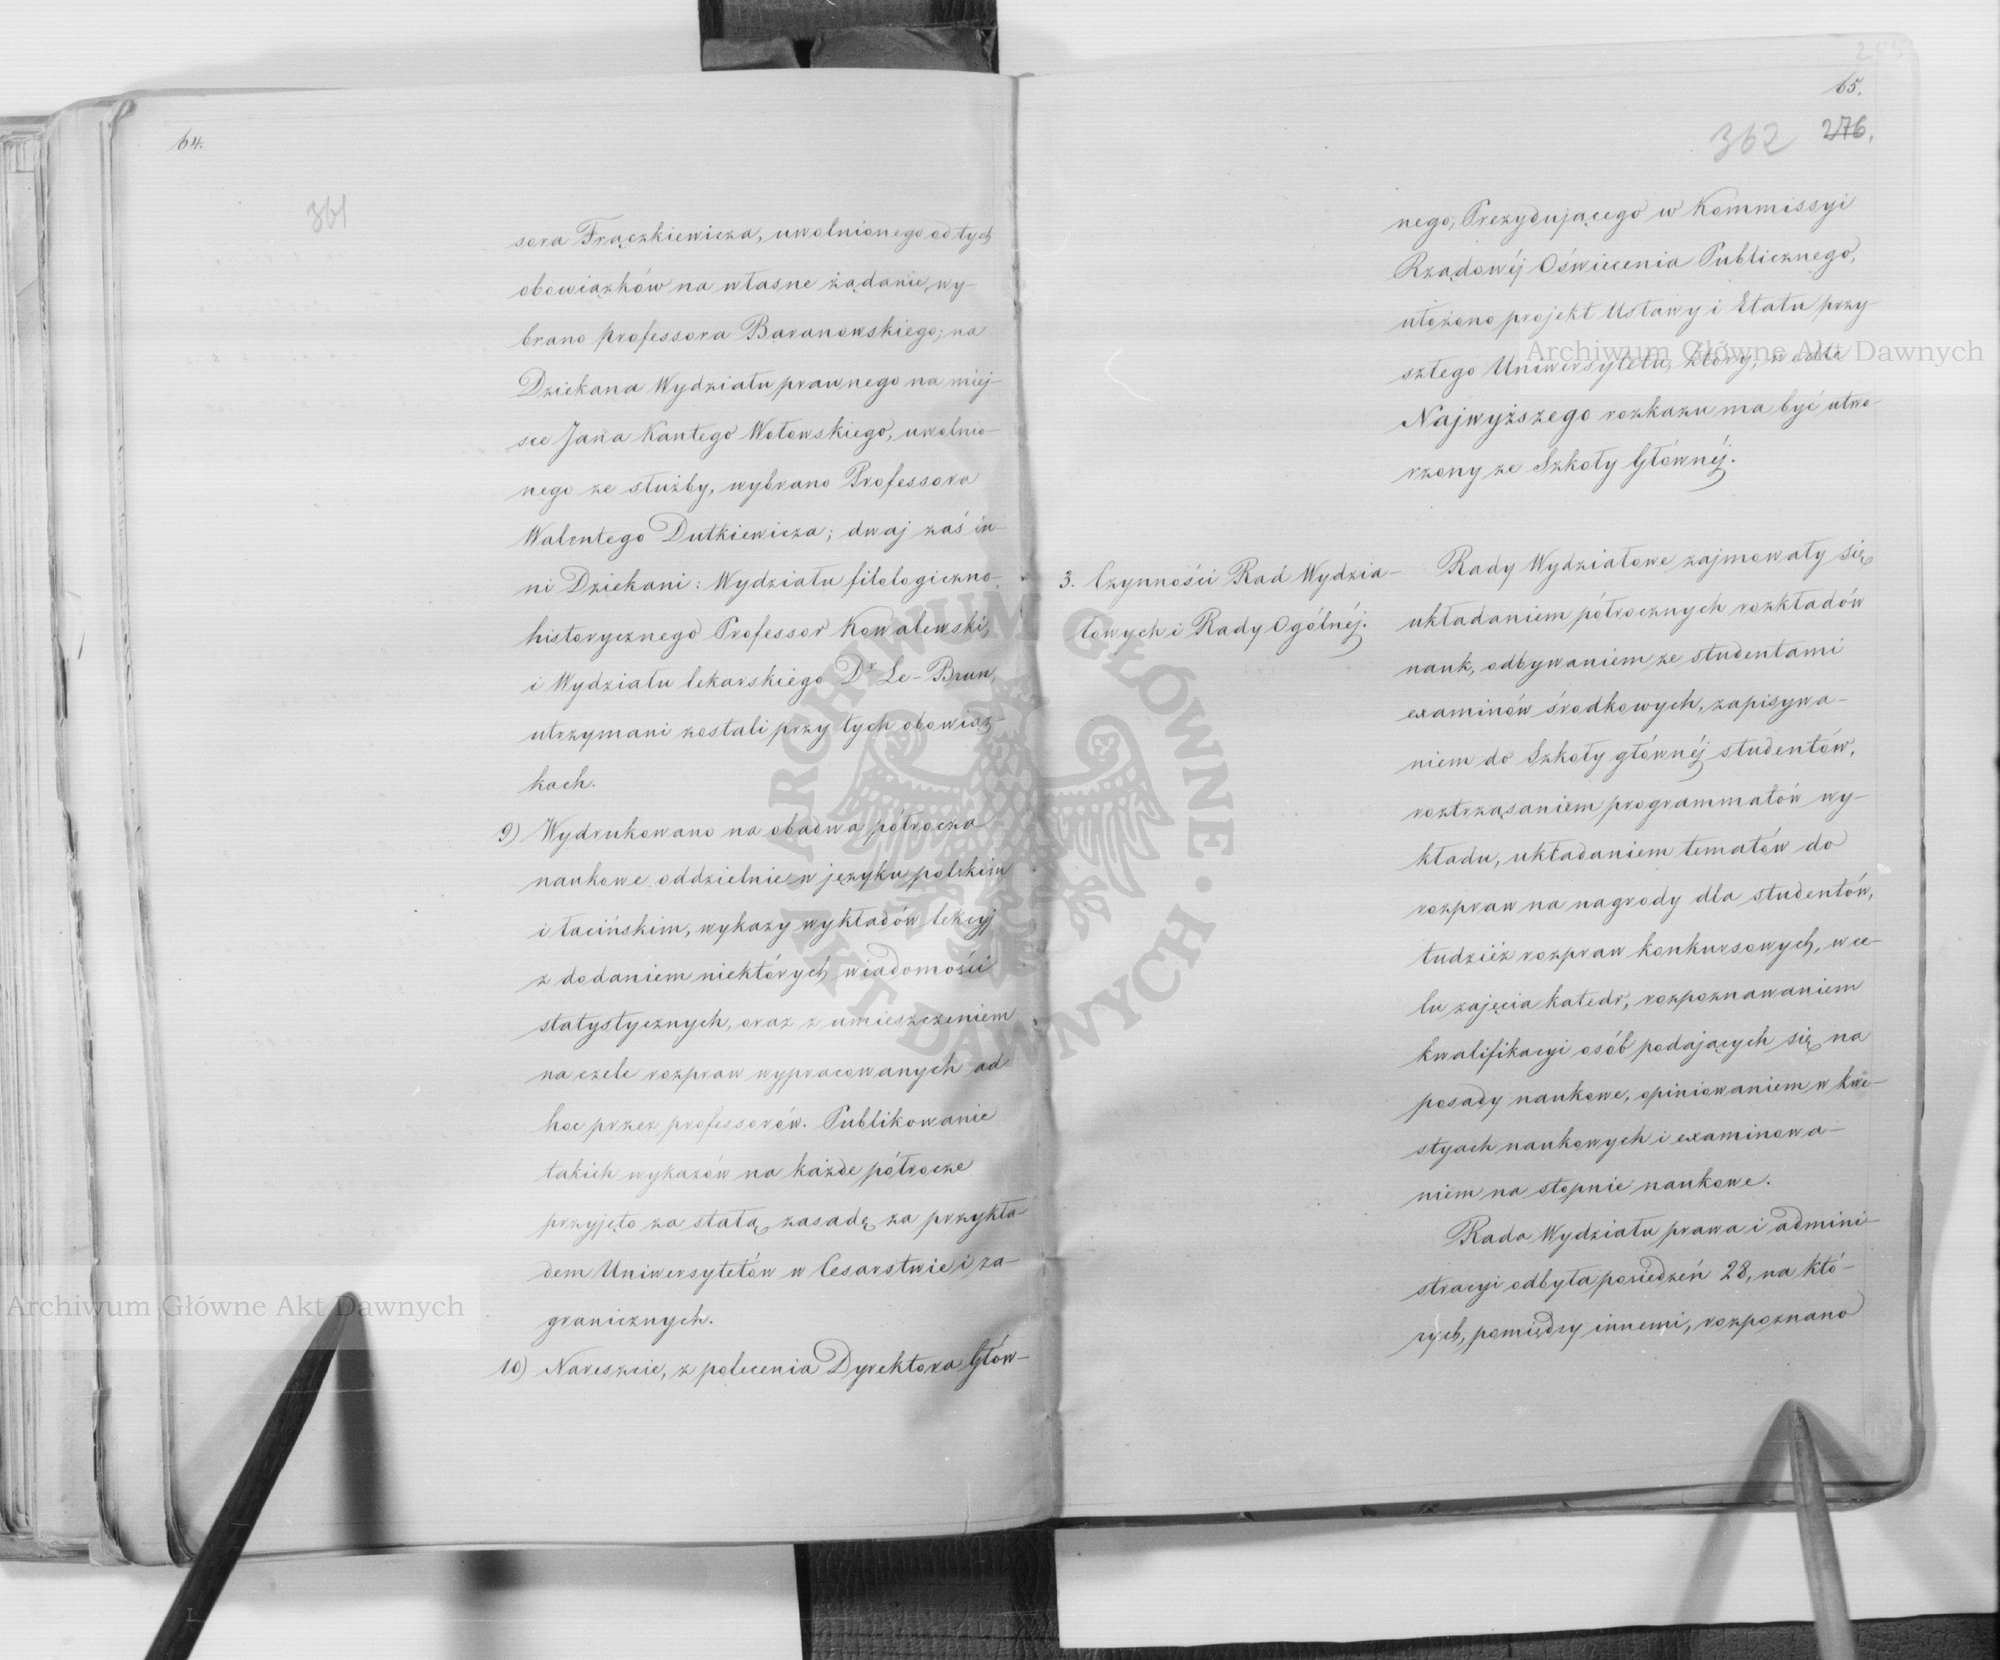 64.
361
sora Frączkiewicza, uwolnionego od tych
obowiązków na własne żądanie, wy-
brano professora Baranowskiego; na
Dziekana Wydziału prawnego na miej-
sce Jana Kantego Wołowskiego, uwolnio-
nego ze służby, wybrano Professora
Walentego Dutkiewicza; dwaj zaś in-
ni Dziekani: Wydziału filologiczno-
historycznego Professor Kowalewski,
i Wydziału lekarskiego Dr Le-Brun,
utrzymani zostali przy tych obowiąz-
kach.
9) Wydrukowano na obadwa półrocza
naukowe oddzielnie w języku polskim
i łacińskim, wykazy wykładów lekcyj
z dodaniem niektórych wiadomości
statystycznych, oraz z umieszczeniem
na czele rozpraw wypracowanych ad
hoc przez professorów. Publikowanie
takich wykazów na każde półrocze
przyjęto za stałą zasadę za przykła-
dem Uniwersytetów w Cesarstwie i za-
granicznych.
10) Nareszcie, z polecenia Dyrektora Głów-
65.
362 276.
nego, Prezydującego w Kommissyi
Rządowéj Oświecenia Publicznego,
ułożono projekt Ustawy i Etatu przy-
szłego Uniwersytetu, który, wedle
Najwyższego rozkazu ma być utwo-
rzony ze Szkoły Głównéj.
3. Czynności Rad Wydzia-
łowych i Rady Ogólnéj.
Rady Wydziałowe zajmowały się
układaniem półrocznych rozkładów
nauk, odbywaniem ze studentami
examinów środkowych, zapisywa-
niem do Szkoły głównéj studentów,
roztrząsaniem programmatów wy-
kładu, układaniem tematów do
rozpraw na nagrody dla studentów,
tudzież rozpraw konkursowych, w ce-
lu zajęcia katedr, rozpoznawaniem
kwalifikacyi osób podających się na
posady naukowe, opiniowaniem w kwe-
styach naukowych i examinowa-
niem na stopnie naukowe.
Rada Wydziału prawa i admini-
stracyi odbyła posiedzeń 28, na któ-
rych, pomiędzy innemi, rozpoznano
Archiwum Główne Akt Dawnych
Archiwum Główne Akt Dawnych
ARCHIWUM GŁÓWNE AKT DAWNYCH